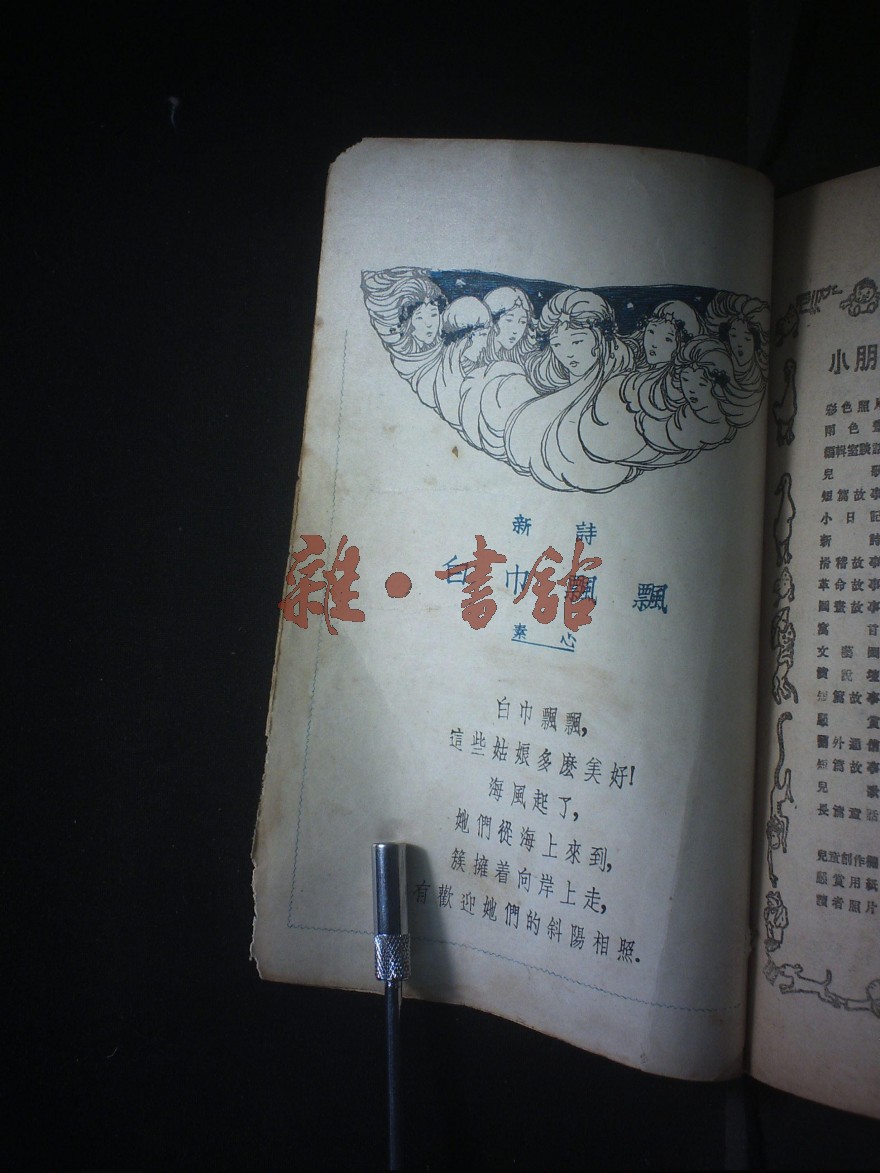 新詩
白巾飄飄
素心
白巾飄飄，
這些姑娘多麽美好！
海風起了，
她們從海上來到，
簇擁着向岸上走，
有歡迎她們的斜陽相照．
雜·書舘
小朋
彩色照片
兩色
編輯室談話
兒歌
短篇故事
小日記
新詩
滑稽故事
革命故事
圖畫故事
寓言
文藝圖
演說壇
短篇故事
懸賞
國外通信
短篇故事
兒歌
長篇童話
兒童創作欄
懸賞用紙
讀者照片